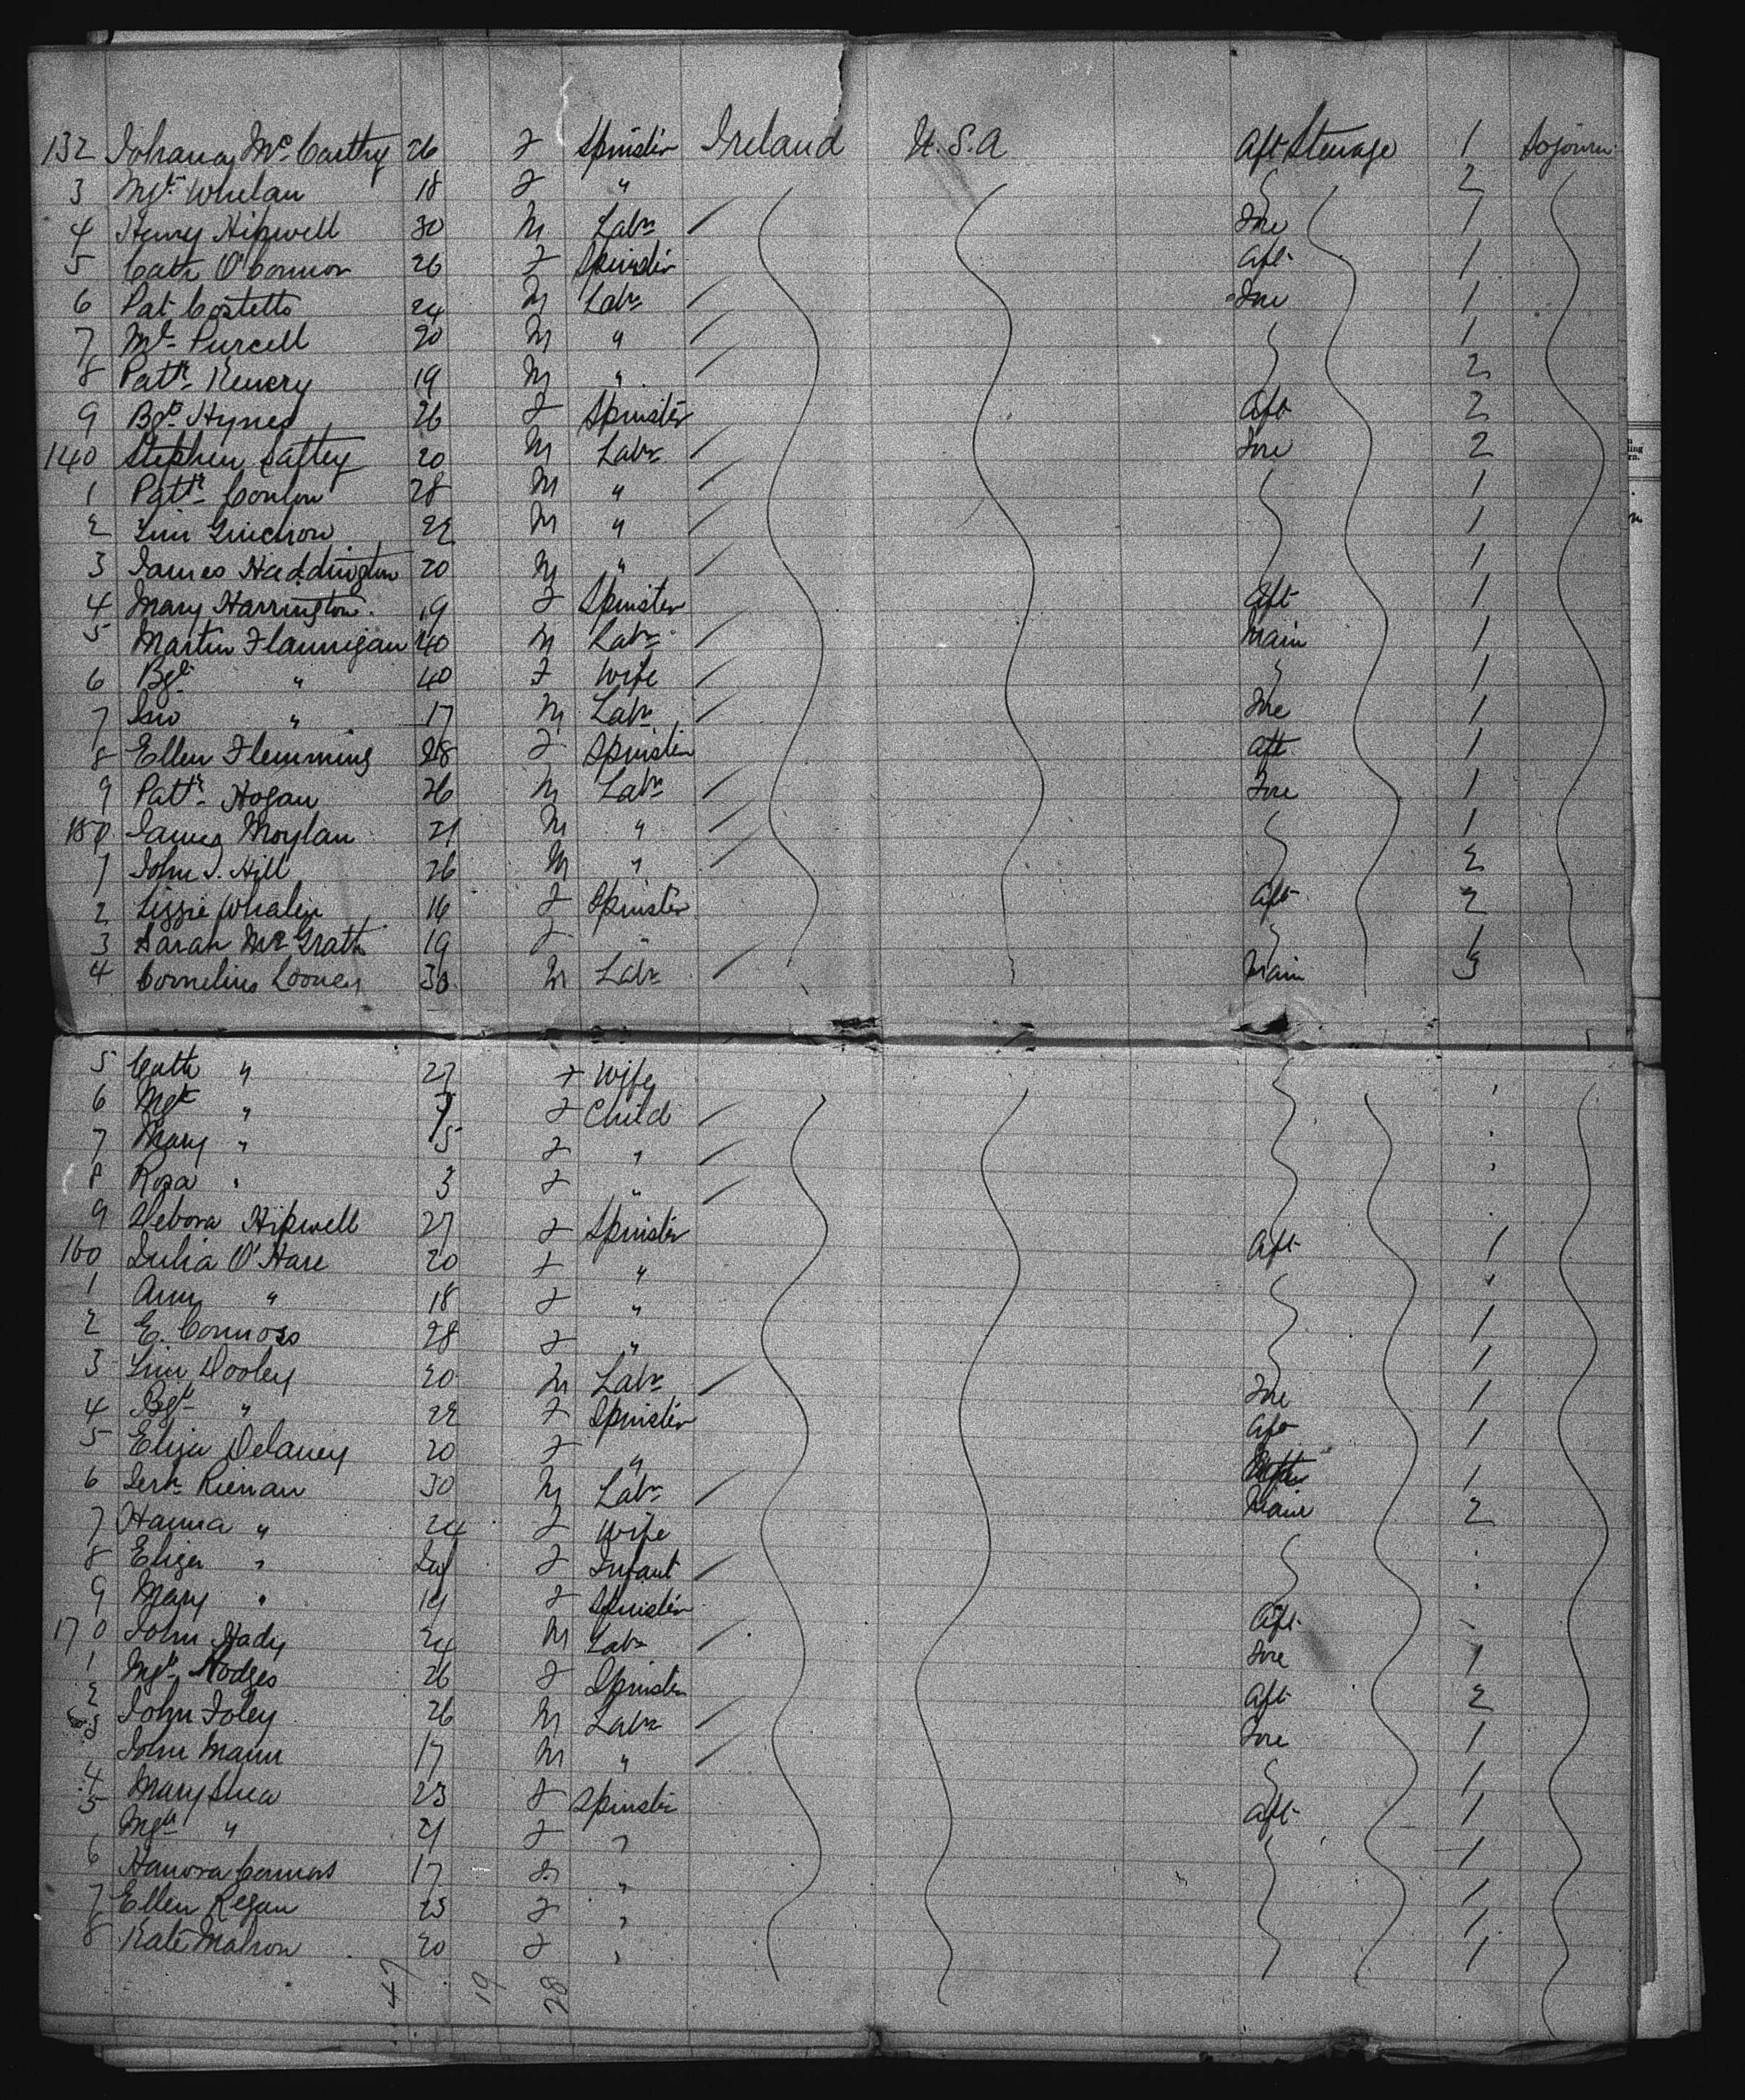 132 Johana Mc Carthy 26 F Spinster Ireland U.S.A Aft Steerage 1 Sojourn
3 Mgt Whelan 18 F " 2
4 Henry Hipwell 30 M Labr Fore 1
5 Cath O'Connor 26 F Spinster Aft 1
6 Pat Costello 24 M Labr Fore 1
7 Ml Purcell 20 M " 1
8 Patk 19 M " 2
9 Bgt Hynes 26 F Spinster Aft 2
140 Stephen 20 M Labr Fore 2
1 Patk Conlon 28 M " 1
2 22 M " 1
3 James Haddington 20 M " 1
4 Mary Harrington 19 F Spinster Aft 1
5 Martin Flannigan 40 M Labr Main 1
6 Bgt " 40 F Wife 1
7 Jno " 17 M Labr Fore 1
8 Ellen Flemming 28 F Spinster Aft 1
9 Patk Hogan 26 M Labr Fore 1
150 James Moylan 21 M " 1
1 John J. Hill 26 M " 2
2 Lizzie Whalin 16 F Spinster Aft 2
3 Sarah McGrath 19 F " 1
4 Cornelius Looney 30 M Labr Main 3
5 Cath " 27 F Wife
6 Mgt " 7 F Child
7 Mary " 5 F "
8 Rosa " 3 F "
9 Debora Hipwell 27 F Spinster Aft 1
160 Julia O'Hare 20 F " "
1 Ann " 18 F " 1
2 E. Connors 28 F " 1
3 Dooley 20 M Labr Fore 1
4 Bgt " 22 F Spinster Aft 1
5 Eliza Delaney 20 F " 1
6 Kiernan 30 M Labr Main 2
7 Hanna " 24 F Wife
8 Eliza " Inf F Infant
9 Mary " 19 F Spinster Aft
170 John 24 M Labr Fore 1
1 Mgt Hodges 26 F Spinster Aft 2
2 John Foley 26 M Labr Fore 1
3 John Mann 17 M " 1
4 Mary Shea 23 F Spinster Aft 1
5 Mgt " 21 F " 1
6 Hanora Connors 17 F " 1
7 Ellen Regan 23 F " 1
8 Kate Malson 20 F " 1
47 19 28